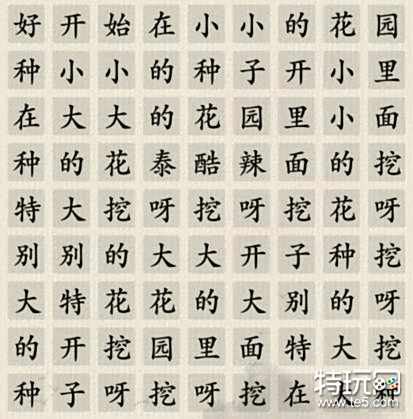 好开始在小小的花园
种小小的种子开小里
在大大的花园里小面
种的花泰酷辣面的挖
特大挖呀挖呀挖花呀
别别的大大开子种挖
大特花花的大别的呀
的开挖园里面特大挖
种子呀挖呀挖在
特玩网
www.te5.com